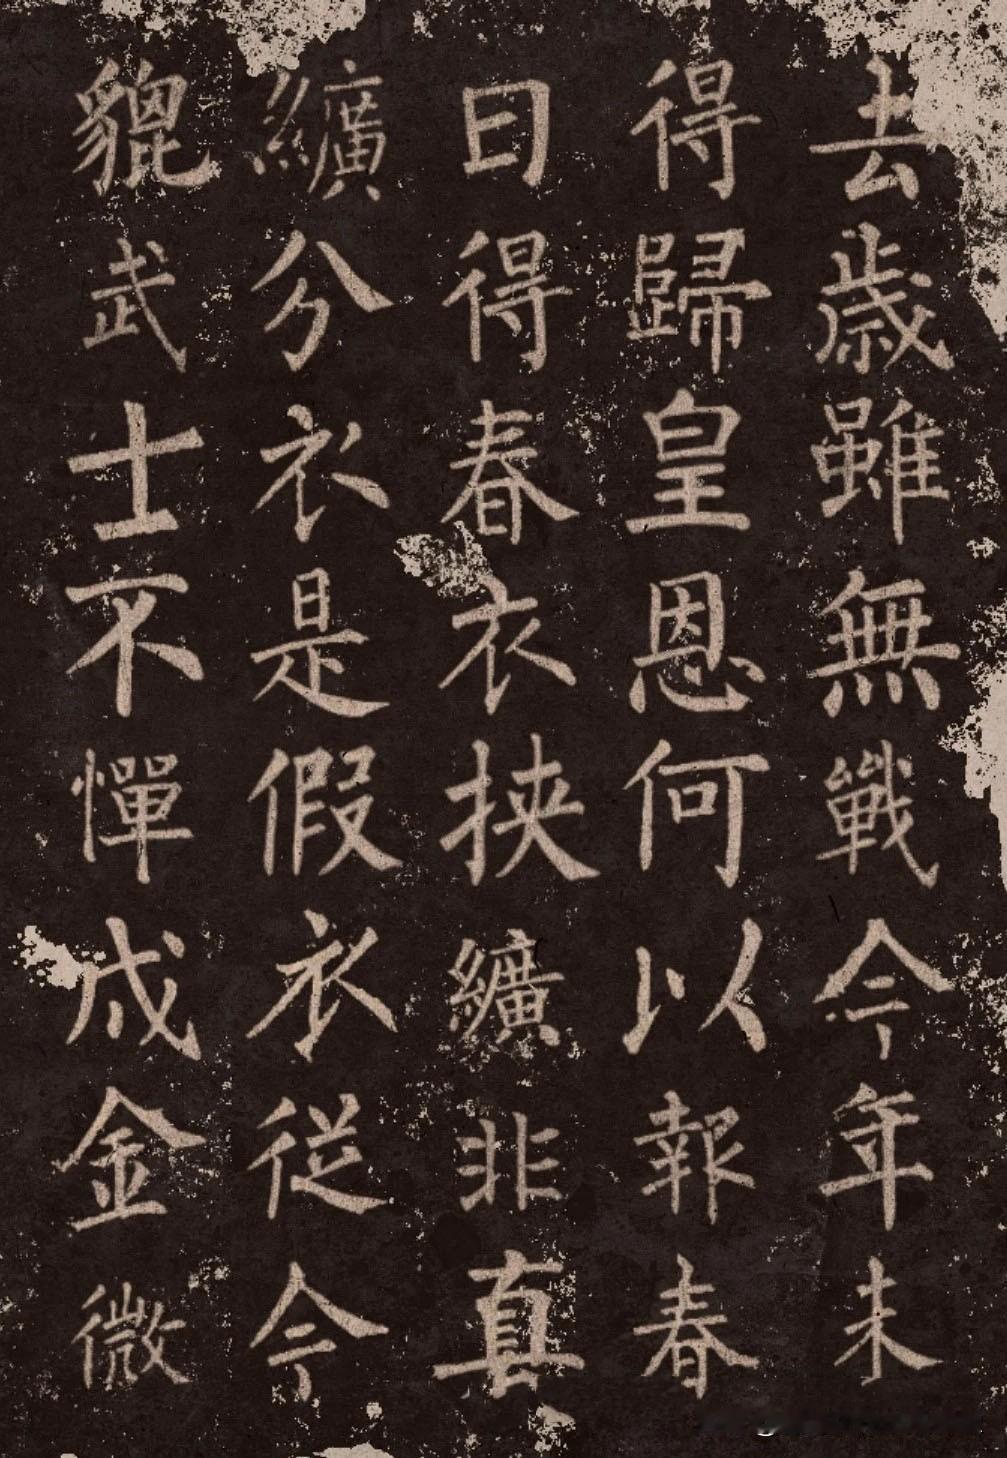 去歲雖無戰今年未
得歸皇恩何以報春
日得春衣挾纊非真
纊分衣是假衣從今
貔武士不憚戍金微